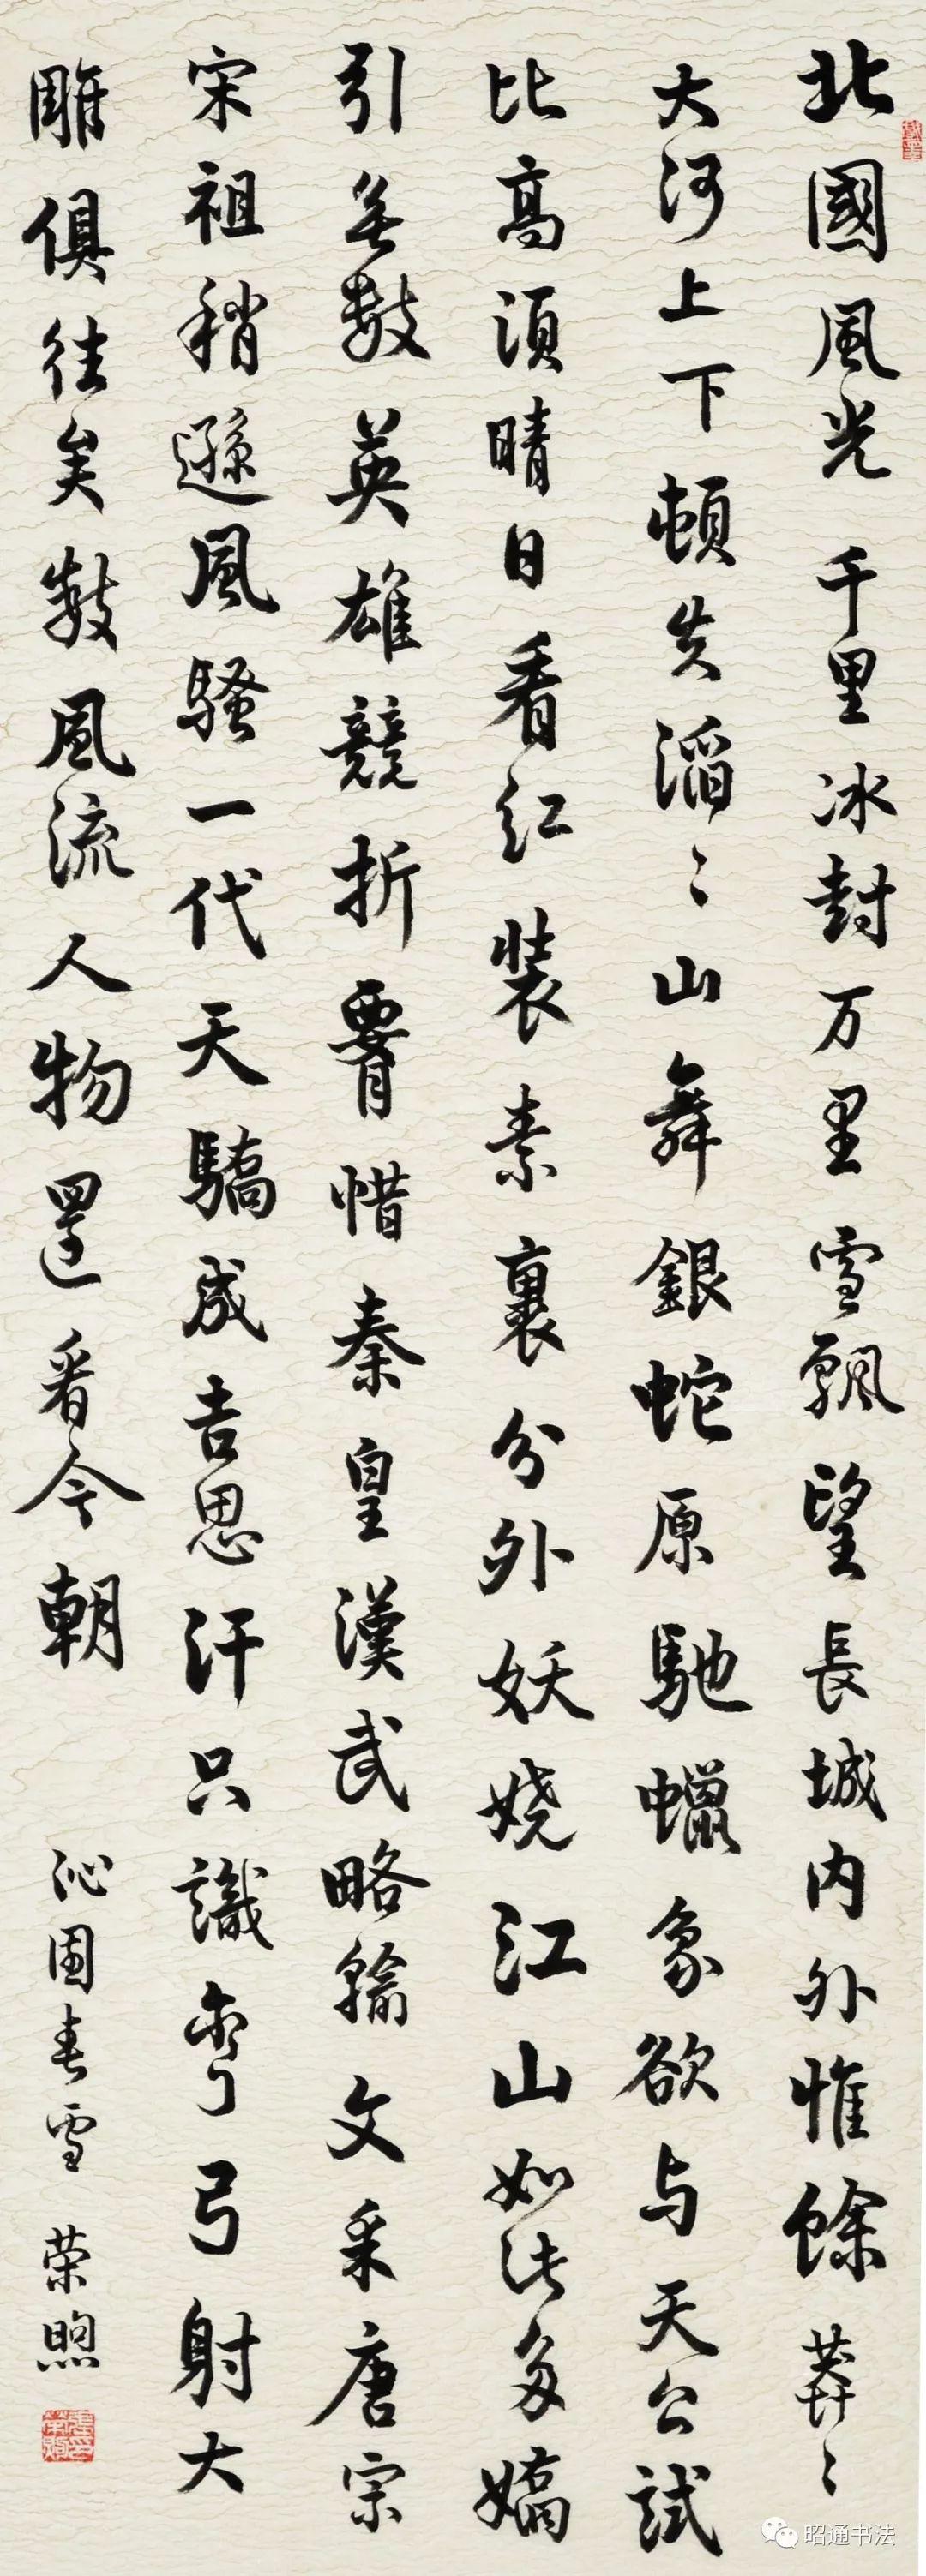 北國風光千里冰封万里雪飄望長城内外惟餘莽〻
大河上下頓失滔〻山舞銀蛇原馳蠟象欲与天公試
比高須晴日看紅裝素裹分外妖娆江山如此多嬌
引無數英雄競折腰惜秦皇漢武略輸文采唐宗
宋祖稍遜風騷一代天驕成吉思汗只識彎弓射大
雕俱往矣數風流人物還看今朝
沁園春雪 荣煦
昭通书法